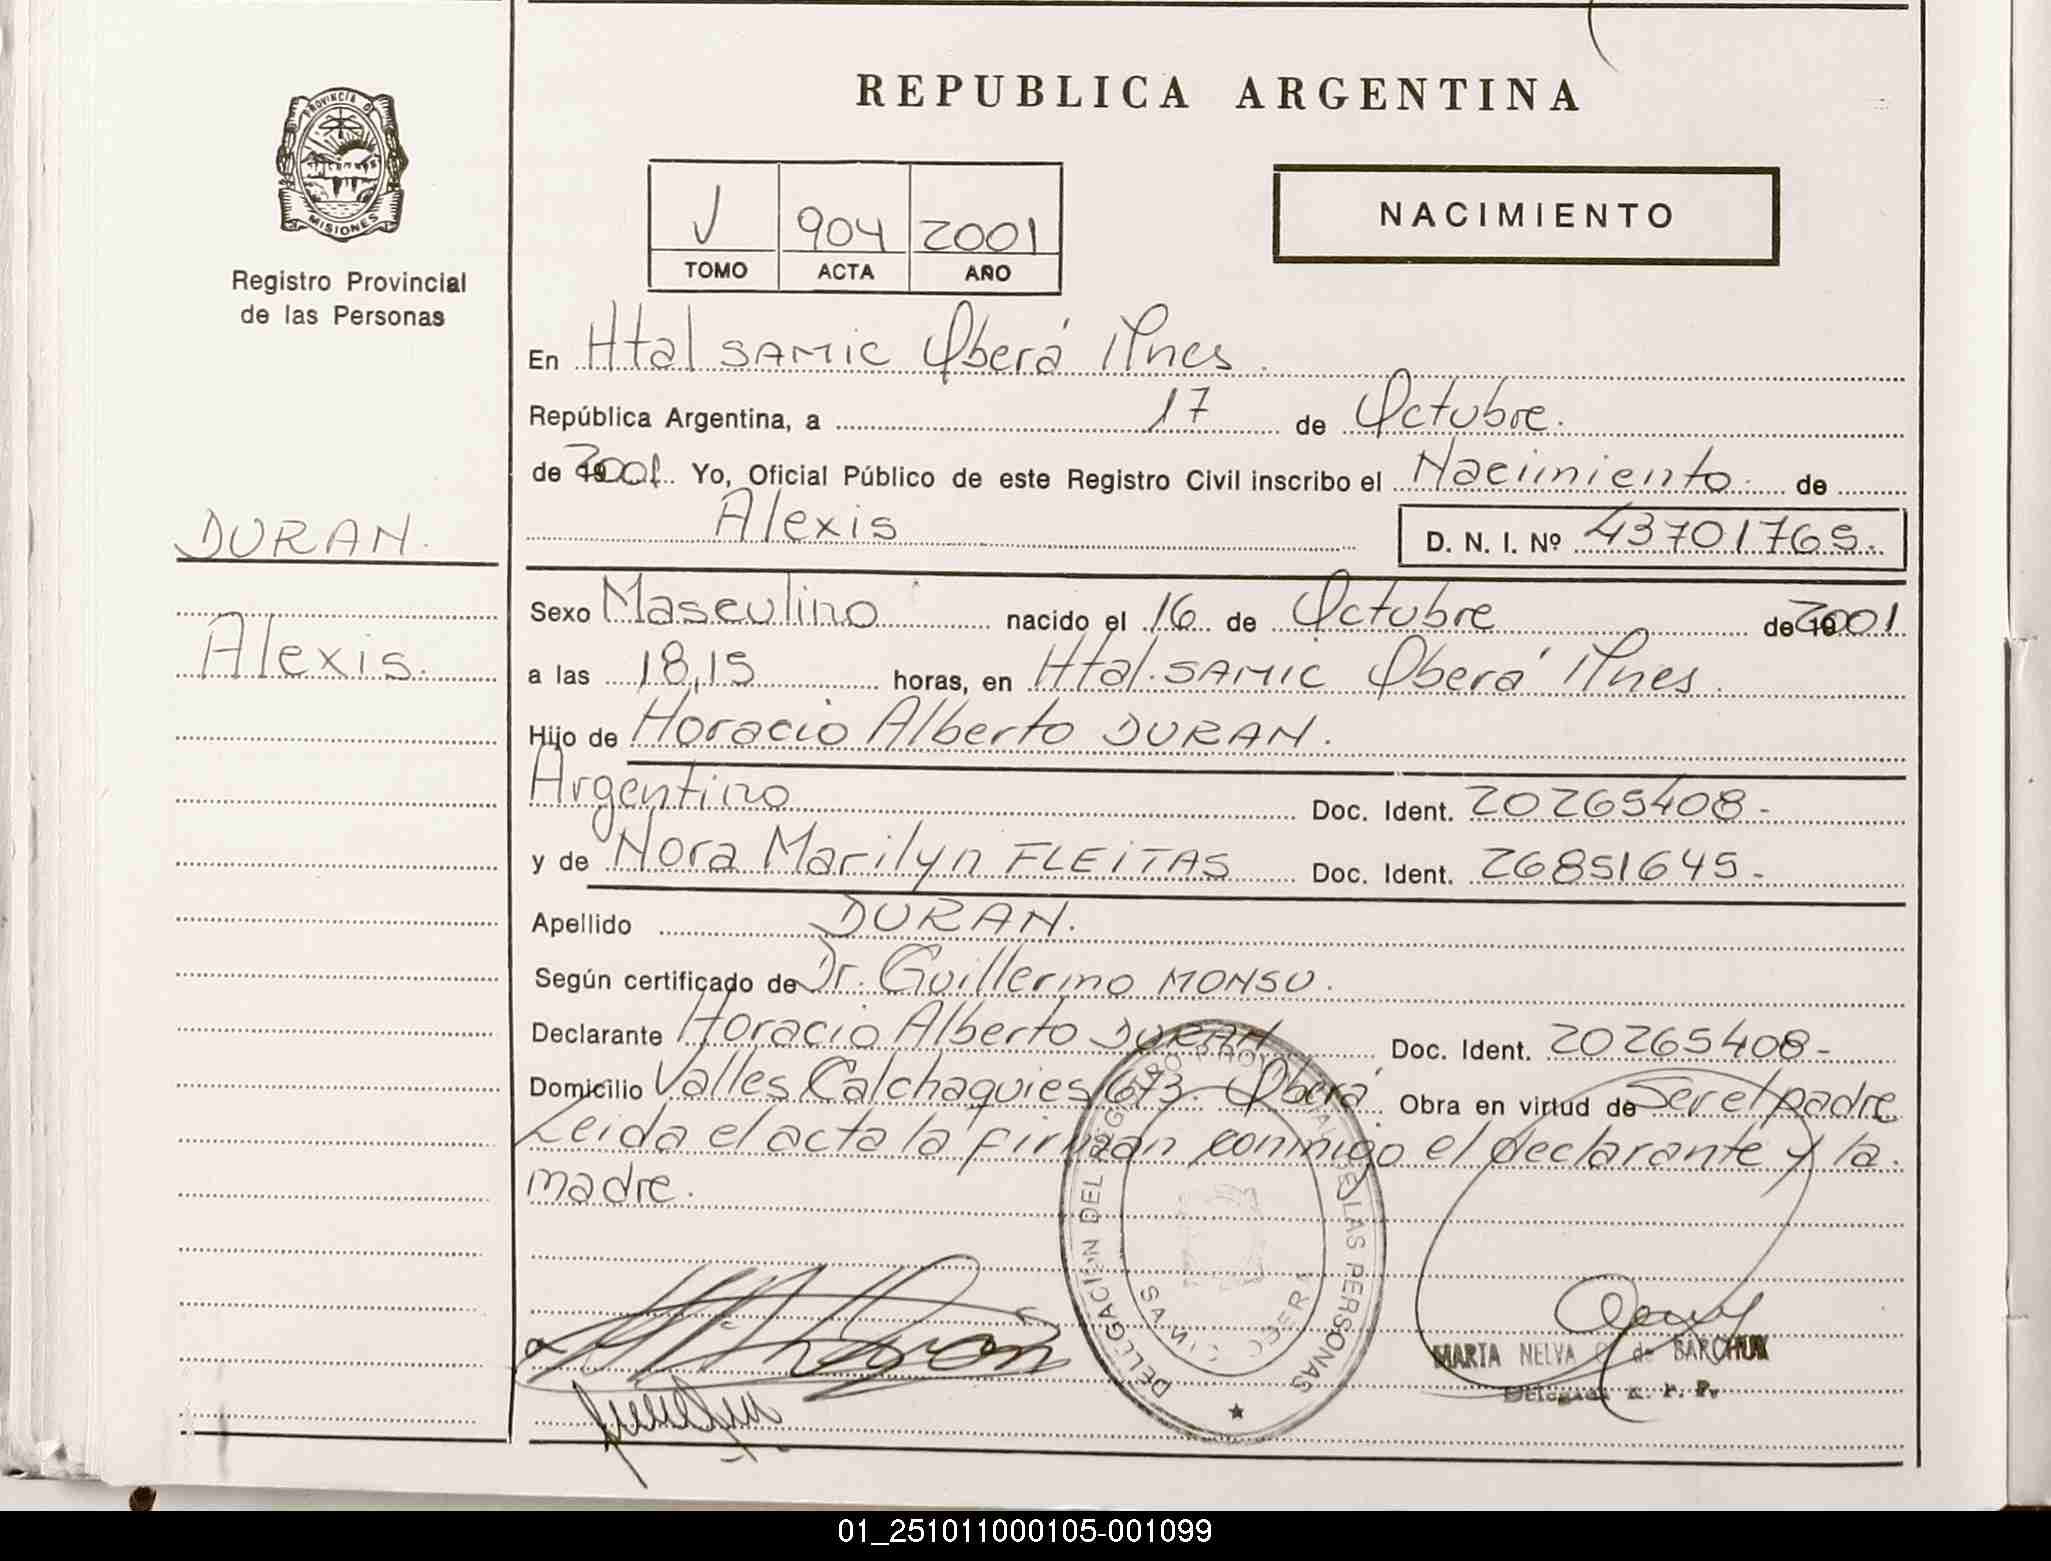 REPUBLICA ARGENTINA
PROVINCIA DE MISIONES
Registro Provincial
de las Personas
V 904 2001
TOMO ACTA AÑO
NACIMIENTO
En Htal SAMIC Oberá Mnes.
República Argentina, a 17 de Octubre.
de 2001. Yo, Oficial Público de este Registro Civil inscribo el Nacimiento de
Alexis D. N. I. Nº 43701765.
DURAN.
Alexis.
Sexo Masculino nacido el 16 de Octubre de 2001
a las 18,15 horas, en Htal. SAMIC Oberá Mnes.
Hijo de Horacio Alberto DURAN.
Argentino Doc. Ident. 20265408-
y de Nora Marilyn FLEITAS Doc. Ident. 26851645-
Apellido DURAN.
Según certificado de Dr. Guillermo MONSU.
Declarante Horacio Alberto DURAN Doc. Ident. 20265408-
Domicilio Valles Calchaquies 673. Oberá Obra en virtud de Ser el padre
Leida el acta la firman conmigo el declarante y la
madre.
DELEGACION DEL REGISTRO PROVINCIAL DE LAS PERSONAS
MARTA NELVA de BARCHUK
01_251011000105-001099